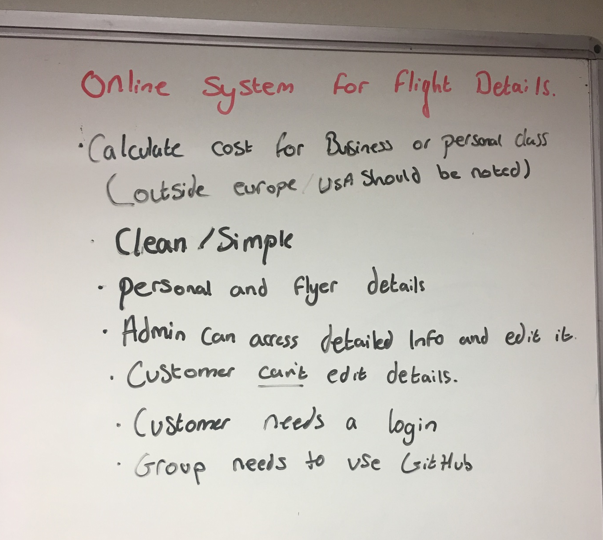 Online System for flight Details.
• Calculate cost for Business or personal class
(outside europe/USA should be noted)
• Clean/Simple
• personal and flyer details
• Admin can access detailed Info and edit it.
• Customer can't edit details.
• Customer needs a login
• Group needs to use GitHub